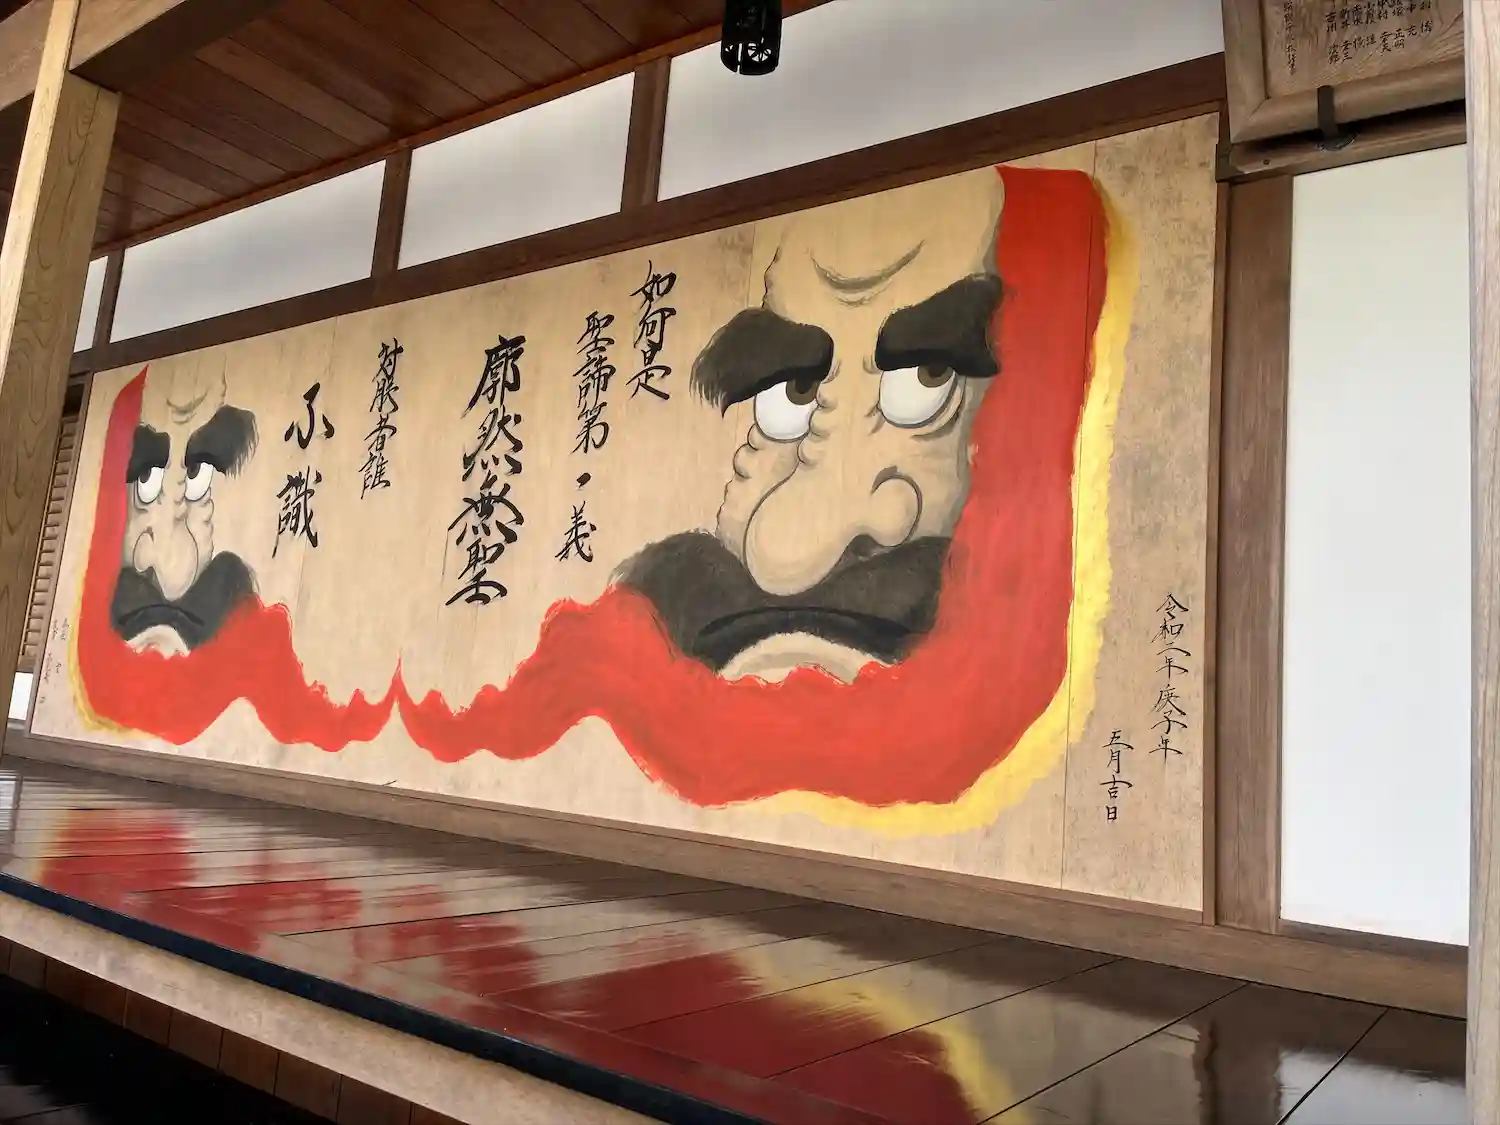 令和二年庚子年
五月吉日
如何是
聖諦第一義
廓然無聖
対朕者誰
不識